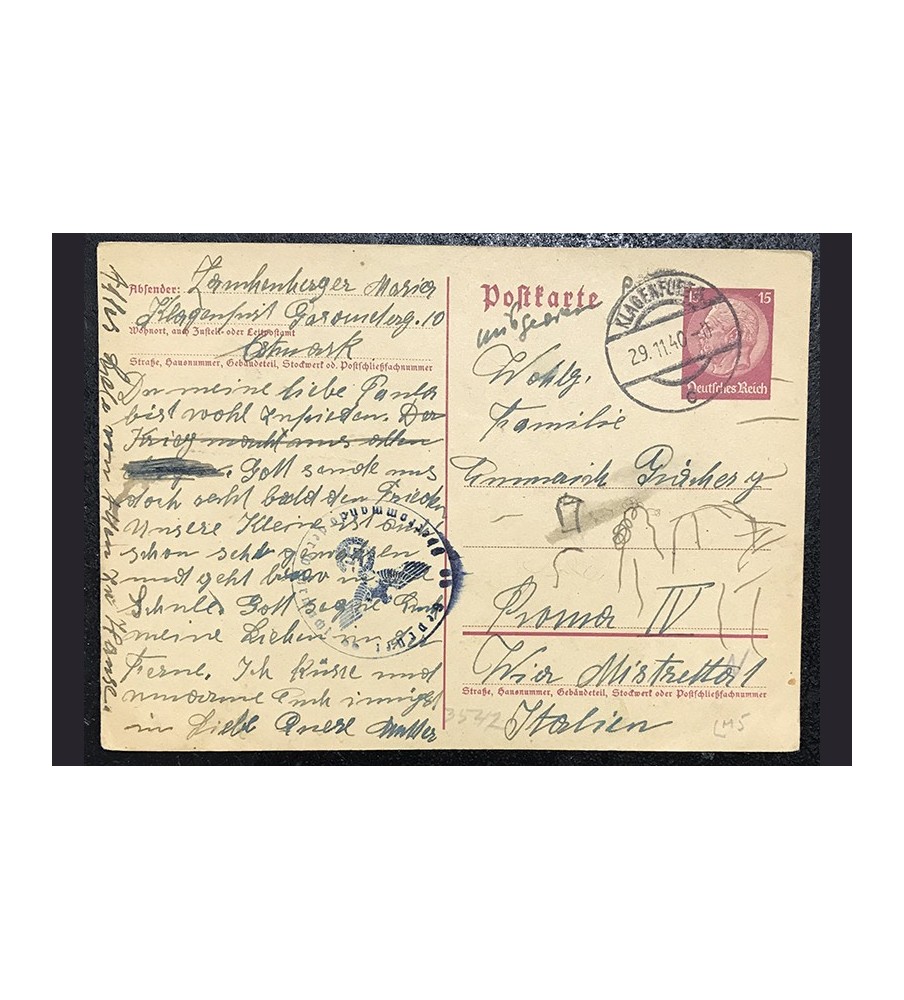 Absender: Maria
Klagenfurt 10
Wohnort, auch Zustell- oder Leitpostamt
Ostmark
Straße, Hausnummer, Gebäudeteil, Stockwerk od. Postschließfachnummer
Du meine liebe Paula
bist wohl zufrieden. Der
Krieg macht uns allen
Gott sende uns
doch recht bald den Frieden
Unsere Kleine ist auch
schon sehr gewachsen
und geht brav in die
Schule. Gott segne Euch
meine Lieben in der
Ferne. Ich küsse und
umarme Euch innigst
in Liebe Eure Mutter
Alles Liebe von zu Hause.
Oberkommando der Wehrmacht
Geprüft
Postkarte
KLAGENFURT
29.11.40
c
15 15
Deutsches Reich
Wohlg.
Familie
Roma IV
Via Mistretta 1
Straße, Hausnummer, Gebäudeteil, Stockwerk oder Postschließfachnummer
Italien
3542
LM5